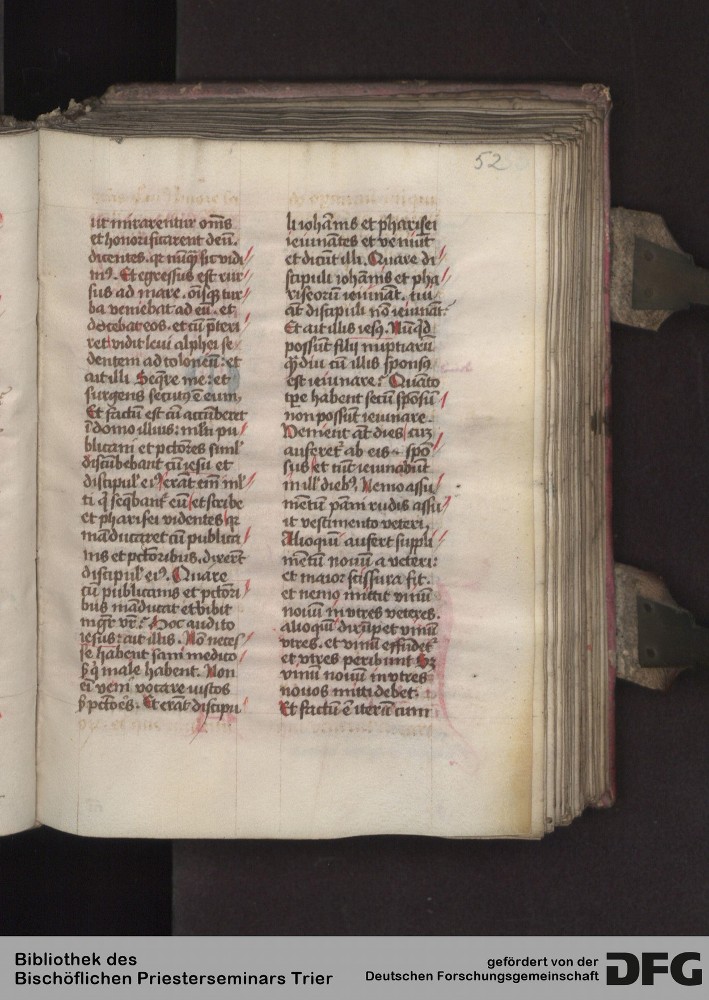 52
ut mirarentur om̄s
et honorificarent deū.
dicentes. qr nūq̄ sic vidi
mꝰ. Et egressus est rur
sus ad mare. oīsq̄ tur
ba veniebat ad eū. et
docebat eos. et cū p̄teri
ret vidit leui alphei se
dentem ad toloneū: et
ait illi. Seq̄re me: et
surgens secutꝰ ē eum,
Et factū est cū accūberet
ī domo illius: ml̄ti pu
blicani et pctōres siml̄
discūbebant cū iesu et
discipul̄ eiꝰ. erāt em̄ ml̄
ti q̄ seq̄bant̄ eū. et scribe
et pharisei videntes qr
māducaret cū publica
nis et pctōribus. dixer̄t
discipul̄ eiꝰ. Quare
cū publicanis et pctōri
bus māducat et bibit
mgr̄ vr̄? Hoc audito
iesus: ait illis. Nō neces
se habent sani medico
s̄ q̄ male habent. Non
eī veni vocare iustos
s̄ pctōēs. Et erāt discipu
li ioh̄annis et pharisei
ieiunātes et veniūt
et dicūt illi. Quare di
scipuli ioh̄anis et pha
riseorū ieiunāt. tui
aūt discipuli nō ieiunāt?
Et ait illis iesꝰ. Nūqd
possūt filij nuptiarū
q̄diu cū illis sponsꝰ
est ieiunare? Quāto
tpe habent secū sponsū
non possūt ieiunare.
Venient aūt dies cuꝫ
auferet̄ ab eis spō
sus et tūc ieiunabūt
in ill̄ diebꝰ. Nemo assu
mētū pāni rudis assu
it vestimento veteri,
Alioquī aufert suppli
mētū nouū a veteri:
et maior scissura fit.
et nemo mittit vinū
nouū in vtres veteres.
alioquī dirūpet vinū
vtres. et vinū effūdet̄
et vtres peribunt Sꝫ
vinū nouū in vtres
nouos mitti debet.
Et factū ē iterū cum
Bibliothek des
Bischöflichen Priesterseminars Trier
gefördert von der
Deutschen Forschungsgemeinschaft
DFG